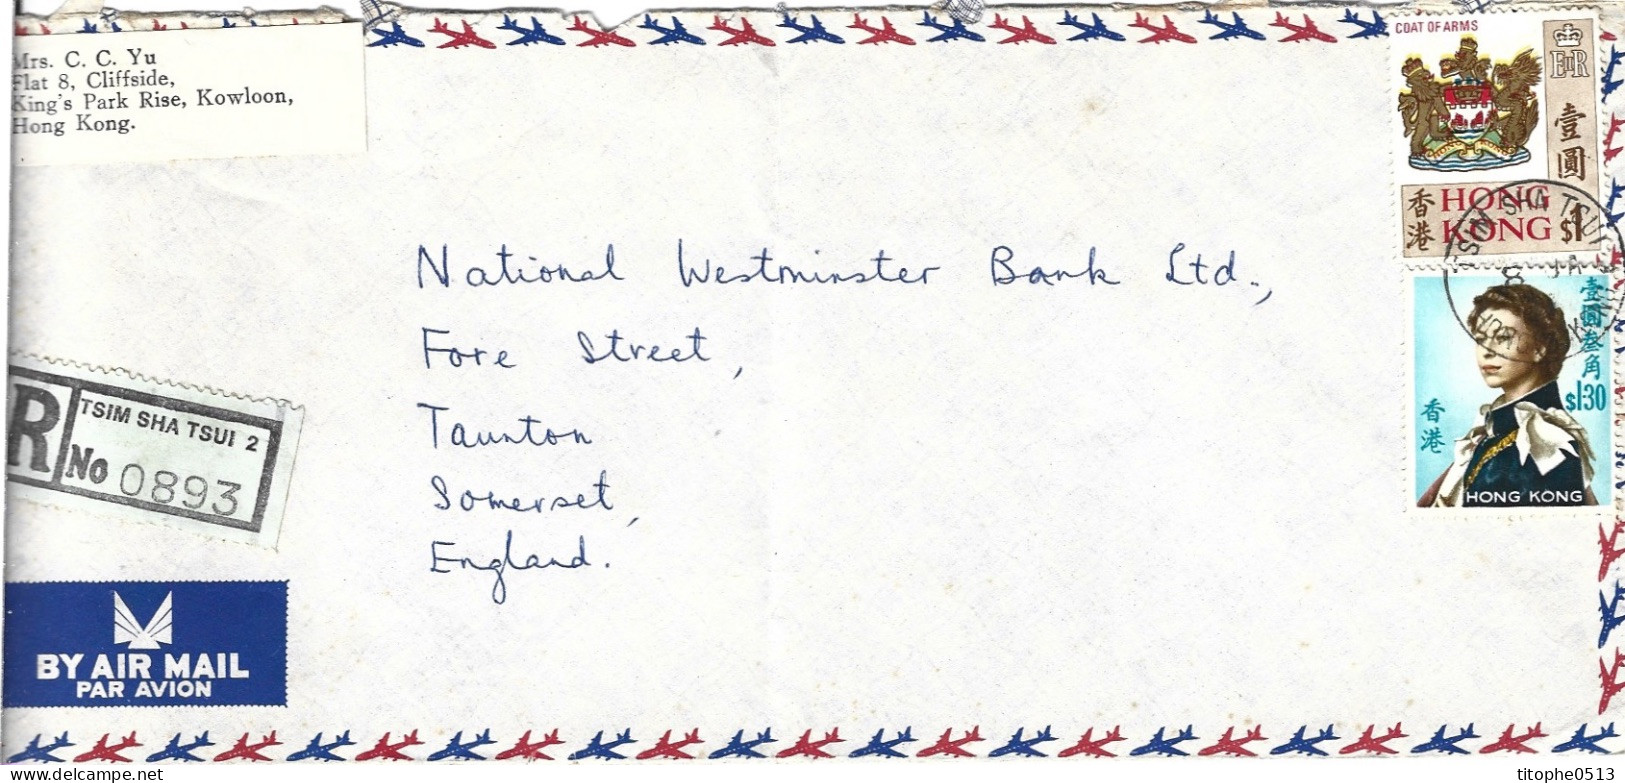 Mrs. C. C. Yu
Flat 8, Cliffside,
King's Park Rise, Kowloon,
Hong Kong.
COAT OF ARMS
EIIR
壹圓
香港
HONG KONG
$1
TSIM SHA TSUI
壹圓叁角
$1·30
香港
HONG KONG
National Westminster Bank Ltd.,
Fore Street,
Taunton
Somerset,
England.
R
TSIM SHA TSUI 2
No 0893
BY AIR MAIL
PAR AVION
titophe0513